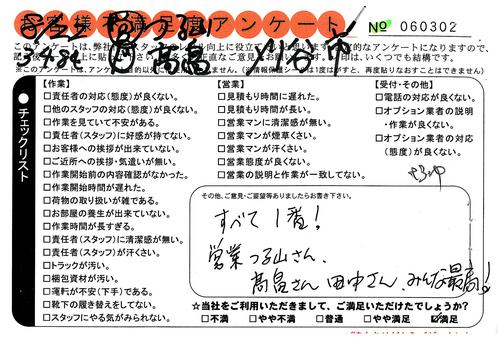 お客様不満足度アンケート
No 060302
このアンケートは、弊社
刈谷市
高畠
※このアンケートは、
【作業】
□責任者の対応(態度)が良くない。
□他のスタッフの対応(態度)が良くない。
□作業を見ていて不安がある。
□責任者(スタッフ)に好感が持てない。
□お客様への挨拶が出来ていない。
□ご近所への挨拶・気遣いが無い。
□作業開始前の内容確認がなかった。
□作業開始時間が遅れた。
□荷物の取り扱いが雑である。
□お部屋の養生が出来ていない。
□作業時間が長すぎる。
□責任者(スタッフ)に清潔感が無い。
□責任者(スタッフ)が汗くさい。
□トラックが汚い。
□梱包資材が汚い。
□運転が不安(下手)である。
□靴下の履き替えをしてない。
□スタッフにやる気がみられない。
【営業】
□見積もり時間に遅れた。
□見積もり時間が長い。
□営業マンに清潔感が無い。
□営業マンが煙草くさい。
□営業マンが汗くさい。
□営業態度が良くない。
□営業の説明と作業が一致してない。
【受付・その他】
□電話の対応が良くない。
□オプション業者の説明
・作業が良くない。
□オプション業者の対応
(態度)が良くない。
チェックリスト
その他、ご意見・ご要望等ありましたらお書き下さい。
すべて1番!
営業つる山さん、
高畠さん 田中さん、みんな最高!
☆当社をご利用いただきまして、ご満足いただけたでしょうか?
□不満 □やや不満 □普通 □やや満足 ☑満足